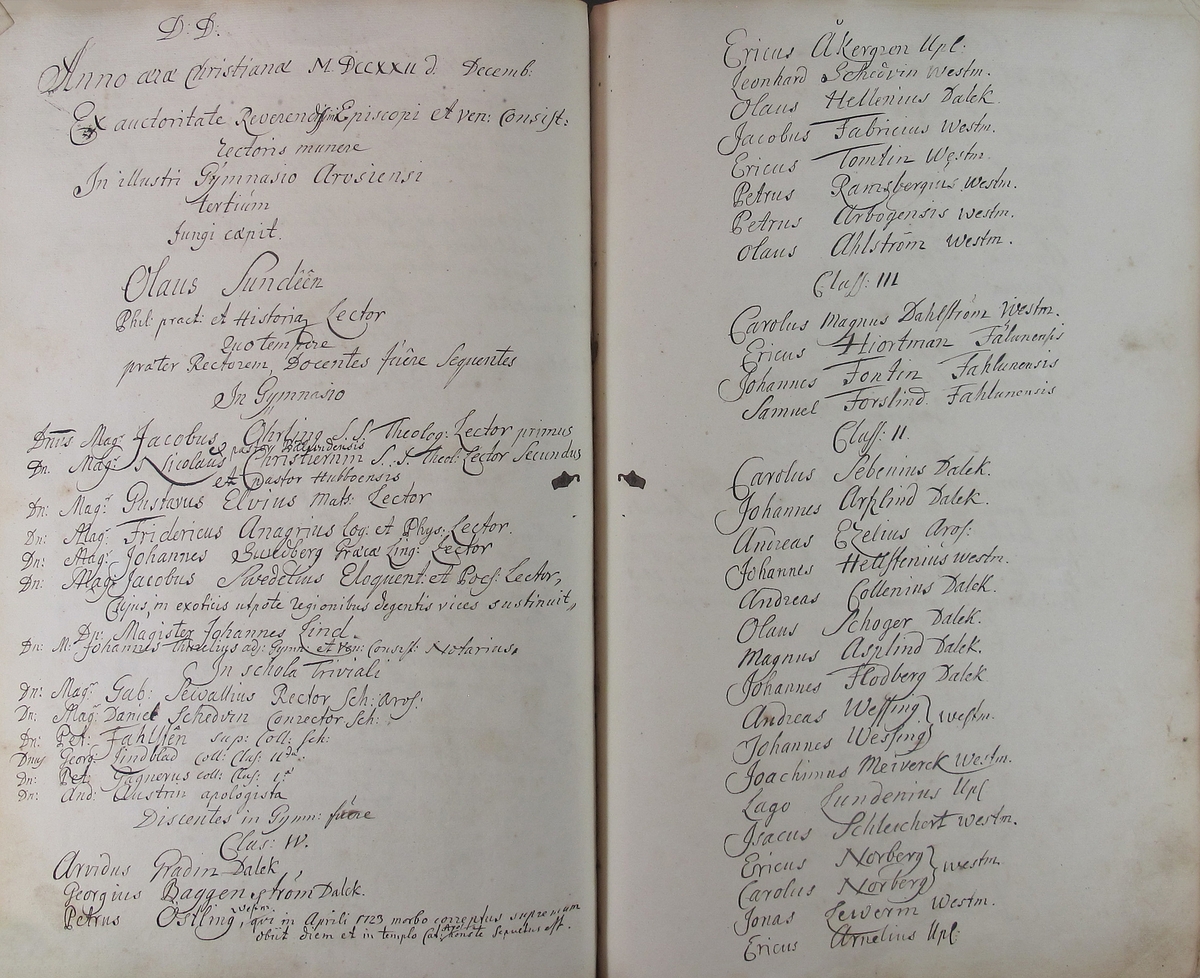 D: D:
Anno æræ Christianæ M.DCCXXII d. Decemb:
Ex auctoritate Reverendissimi Episcopi et ven: Consist:
rectoris munere
In illustri Gymnasio Arosiensi
tertium
fungi cæpit.
Olaus Sundéen
Phil: pract: et Historia Lector
quo tempore
præter Rectorem, Docentes fuêre Sequentes
In Gymnasio
Dnus Mag: Jacobus Ohrling S.S. Theolog: Lector primus
& pastor Badelundensis
Dn: Mag: Nicolaus Christiernin S. S. Theol: Lector Secundus
et pastor Hubboensis
Dn: Mag: Gustavus Elvius Mats: Lector
Dn: Mag: Fridericus Anagrius Log: et Phys: Lector.
Dn: Mag: Johannes Swedberg Græcæ Ling: Lector
Dn: Mag: Jacobus Swedelius Eloquent: et Poes: Lector,
Cujus, in exoticis utpote regionibus degentis vices sustinuit
Dn: Magister Johannes Lind.
Dn: M: Johannes Thuelius adj: Gymn: et Ven: Consist: Notarius.
In schola Triviali
Dn: Mag: Gab: Sewallius Rector Sch: Aros:
Dn: Mag: Daniel Schedvin Conrector Sch:
Dn: Pet: Fahlsten sup: Coll: Sch:
Dnus Georg: Lindblad coll: Clas: II
Dn: Pet: Gagnerus coll: Clas: I
Dn: And: Austrin apologista
Discentes in Gymn: fuêre
Clas: IV.
Arvidus Gradin Dalek
Georgius Baggenström Dalek.
Petrus Östling Westm. qvi in Aprili 1723 morbo correptus supremum
obiit diem et in templo Cat: sepultus est.
Ericus Åkergren Upl:
Leonhard Schedvin Westm.
Olaus Hellenius Dalek
Jacobus Fabricius Westm.
Ericus Tomtin Westm.
Petrus Ramsbergius Westm.
Petrus Arbogensis Westm.
Olaus Ahlström Westm.
Class: III
Carolus Magnus Dahlström Westm.
Ericus Hiortman Falunensis
Johannes Fontin Fahlunensis
Samuel Forslind. Fahlunensis
Class: II.
Carolus Sebenius Dalek.
Johannes Asplind Dalek.
Andreas Ezelius Aros:
Johannes Hellstenius Westm.
Andreas Collenius Dalek.
Olaus Schoger Dalek.
Magnus Asplind Dalek.
Johannes Flodberg Dalek
Andreas Wessing } Westm.
Johannes Wessing }
Joachimus Meiverck Westm.
Lago Lundenius Upl
Isacus Schleichert Westm.
Ericus Norberg } Westm.
Carolus Norberg }
Jonas Sewerin Westm.
Ericus Arnelius Upl: